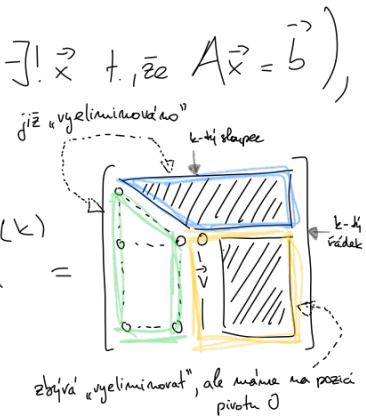 ∃! x⃗ t., že Ax⃗ = b⃗ ),
již „vyeliminováno"
k-tý sloupec
(k)
=
k-tý
řádek
0
0 0 0
v⃗
0 0
zbývá „vyeliminovat", ale máme na pozici
pivotu 0